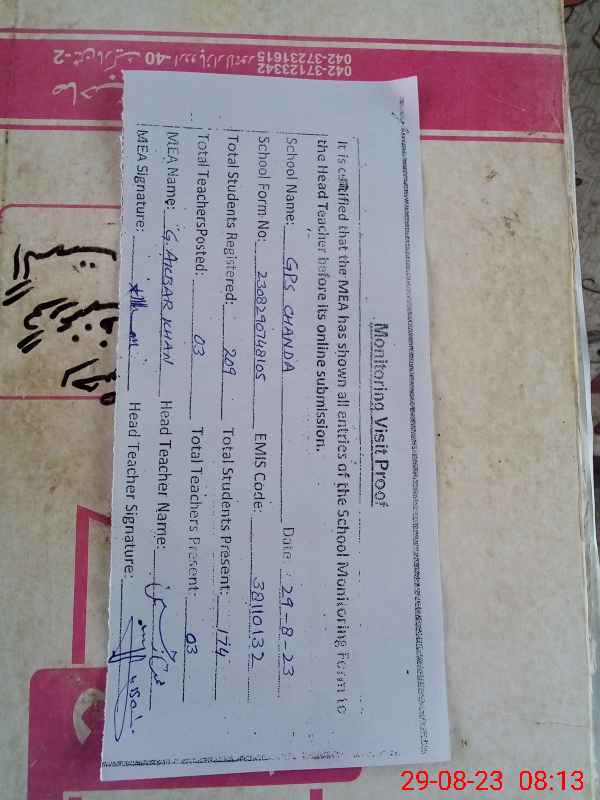 Monitoring Visit Proof
It is certified that the MEA has shown all entries of the School Monitoring Form to
the Head Teacher before its online submission.
School Name: GPS CHANDA Date: 29-8-23
School Form No: 2308290748105 EMIS Code: 38110132
Total Students Registered: 209 Total Students Present: 174
Total TeachersPosted: 03 Total Teachers Present: 03
MEA Name: G. AKBAR KHAN Head Teacher Name:
MEA Signature: Head Teacher Signature:
042-37231615
042-37123342
29-08-23 08:13